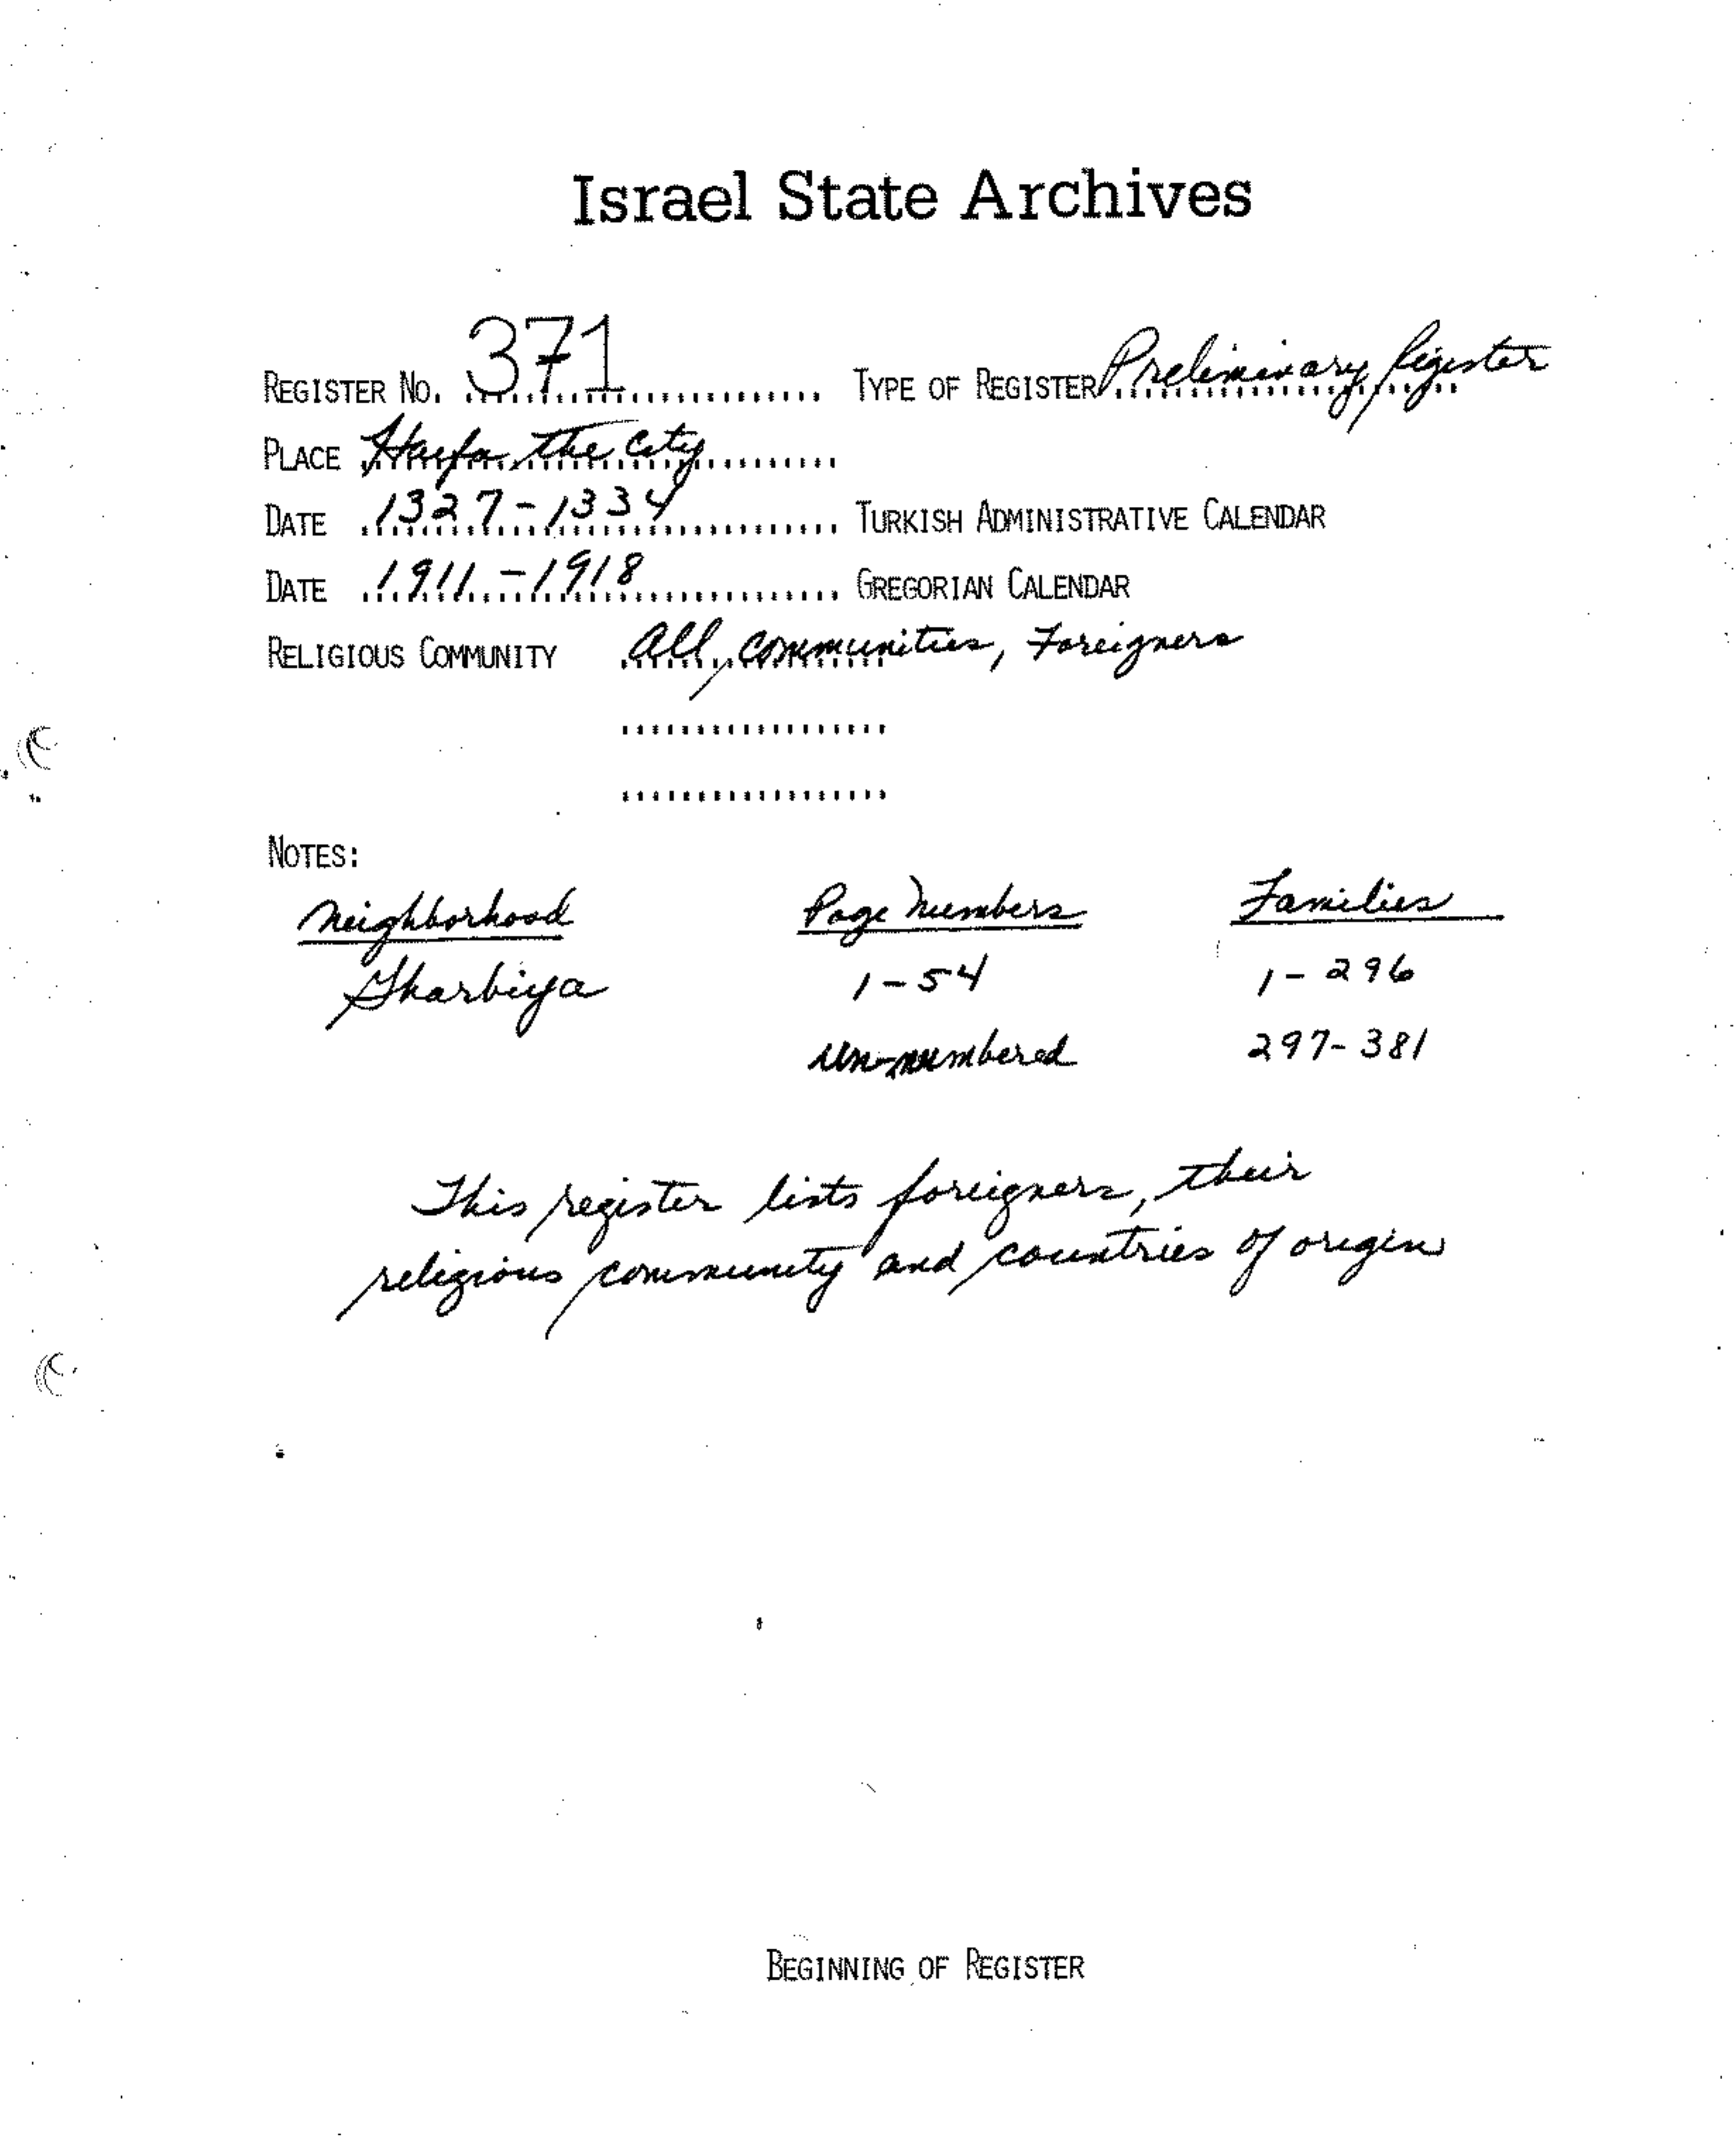 Israel State Archives
REGISTER NO. 371 TYPE OF REGISTER Preliminary Register
PLACE Haifa, the City
DATE 1327-1334 TURKISH ADMINISTRATIVE CALENDAR
DATE 1911-1918 GREGORIAN CALENDAR
RELIGIOUS COMMUNITY All communities, Foreigners
NOTES:
Neighborhood Page Numbers Families
Gharbiya 1-54 1-296
Un-numbered 297-381
This register lists foreigners, their
religious community and countries of origin
BEGINNING OF REGISTER